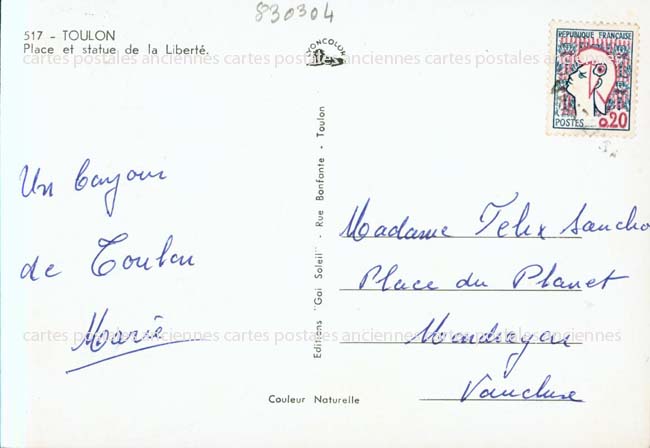 830304
517 - TOULON
Place et statue de la Liberté.
LYONCOLOR
REPUBLIQUE FRANÇAISE
0.20
POSTES
cartes postales anciennes cartes postales anciennes cartes postales anciennes cartes postales
Un Conjour
de Toulon
Marie
Editions "Gai Soleil" - Rue Bonfante - Toulon
Madame Felix Sancho
Place du Planet
Mondragon
Vaucluse
cartes postales anciennes cartes postales anciennes cartes postales anciennes cartes postales
Couleur Naturelle